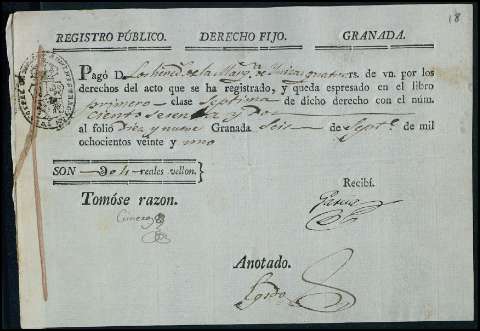 18
REGISTRO PÚBLICO. DERECHO FIJO. GRANADA.
Pagó D. Los hered.s de la Marq.a de quatro rs. de vn. por los
derechos del acto que se ha registrado, y queda espresado en el libro
primero clase Septima de dicho derecho con el núm.
Ciento sesenta y Dos
al folio Diez y nueve Granada Seis de Sept.e de mil
ochocientos veinte y uno
SON 4 reales vellon.
Tomóse razon. Recibí.
Anotado.
Egido